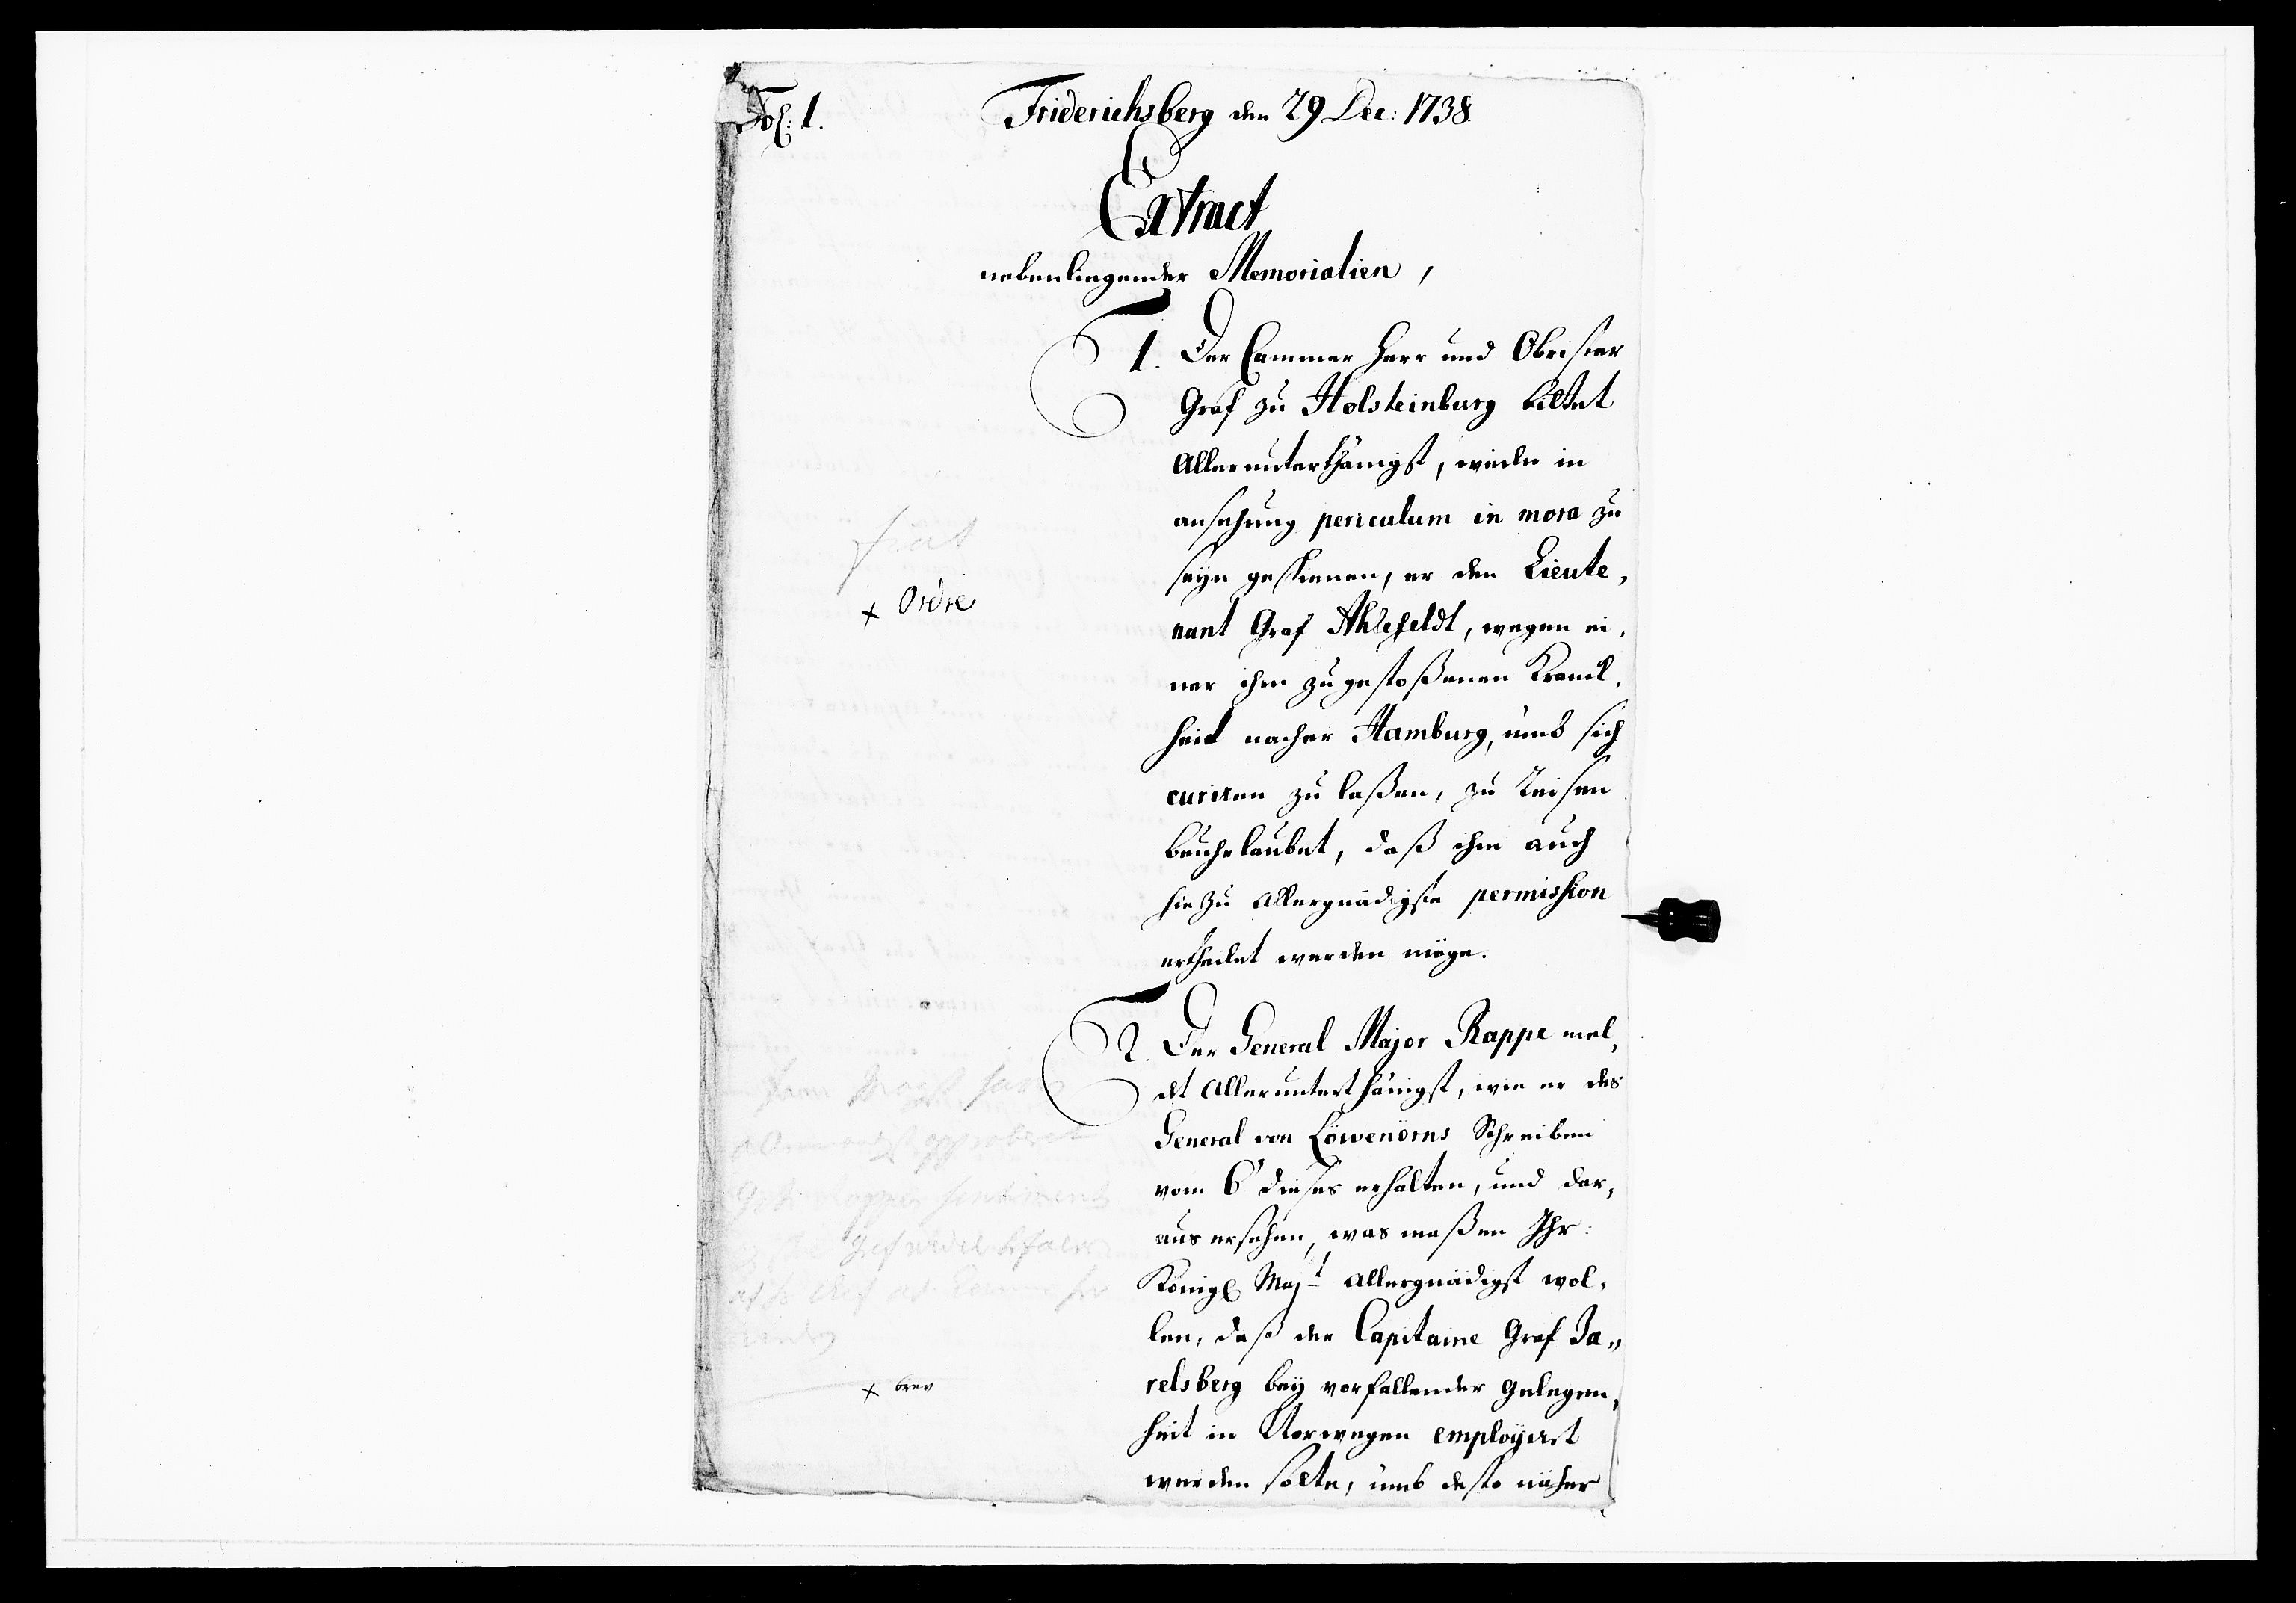 Fol: 1.
Friderichsberg den 29 Dec: 1738.
Extract
nebenliegender Memorialien,
1. Der Cammer Herr und Obrister
Graf zu Holsteinburg bittet
Allerunterthänigst, wieder in
ansehung periculum in mora zu
seyn geschienen, er den Lieute,
nant Graf Ahlefeldt, wegen ei,
ner ihm zugestoßenen Kranck,
heit nacher Hamburg, umb sich
curiren zu laßen, zu Reisen
beuhrlaubet, daß ihm auch
hiezu Allergnädigste permission
ertheilet werden möge.
fiat
+ Ordre
2. Der General Major Rappe mel,
det Allerunterthänigst, wie er des
General von Löwenörns Schreiben
vom 6' dieses erhalten, und dar,
aus ersehen, was maßen Ihr:
Königl Majt Allergnädigst wol,
len, daß der Capitaine Graf Ja,,
relsberg bey vorfallender Gelegen,
heit in Norwegen employert
werden solte, umb desto näher
approberet
sentiment
+ brev